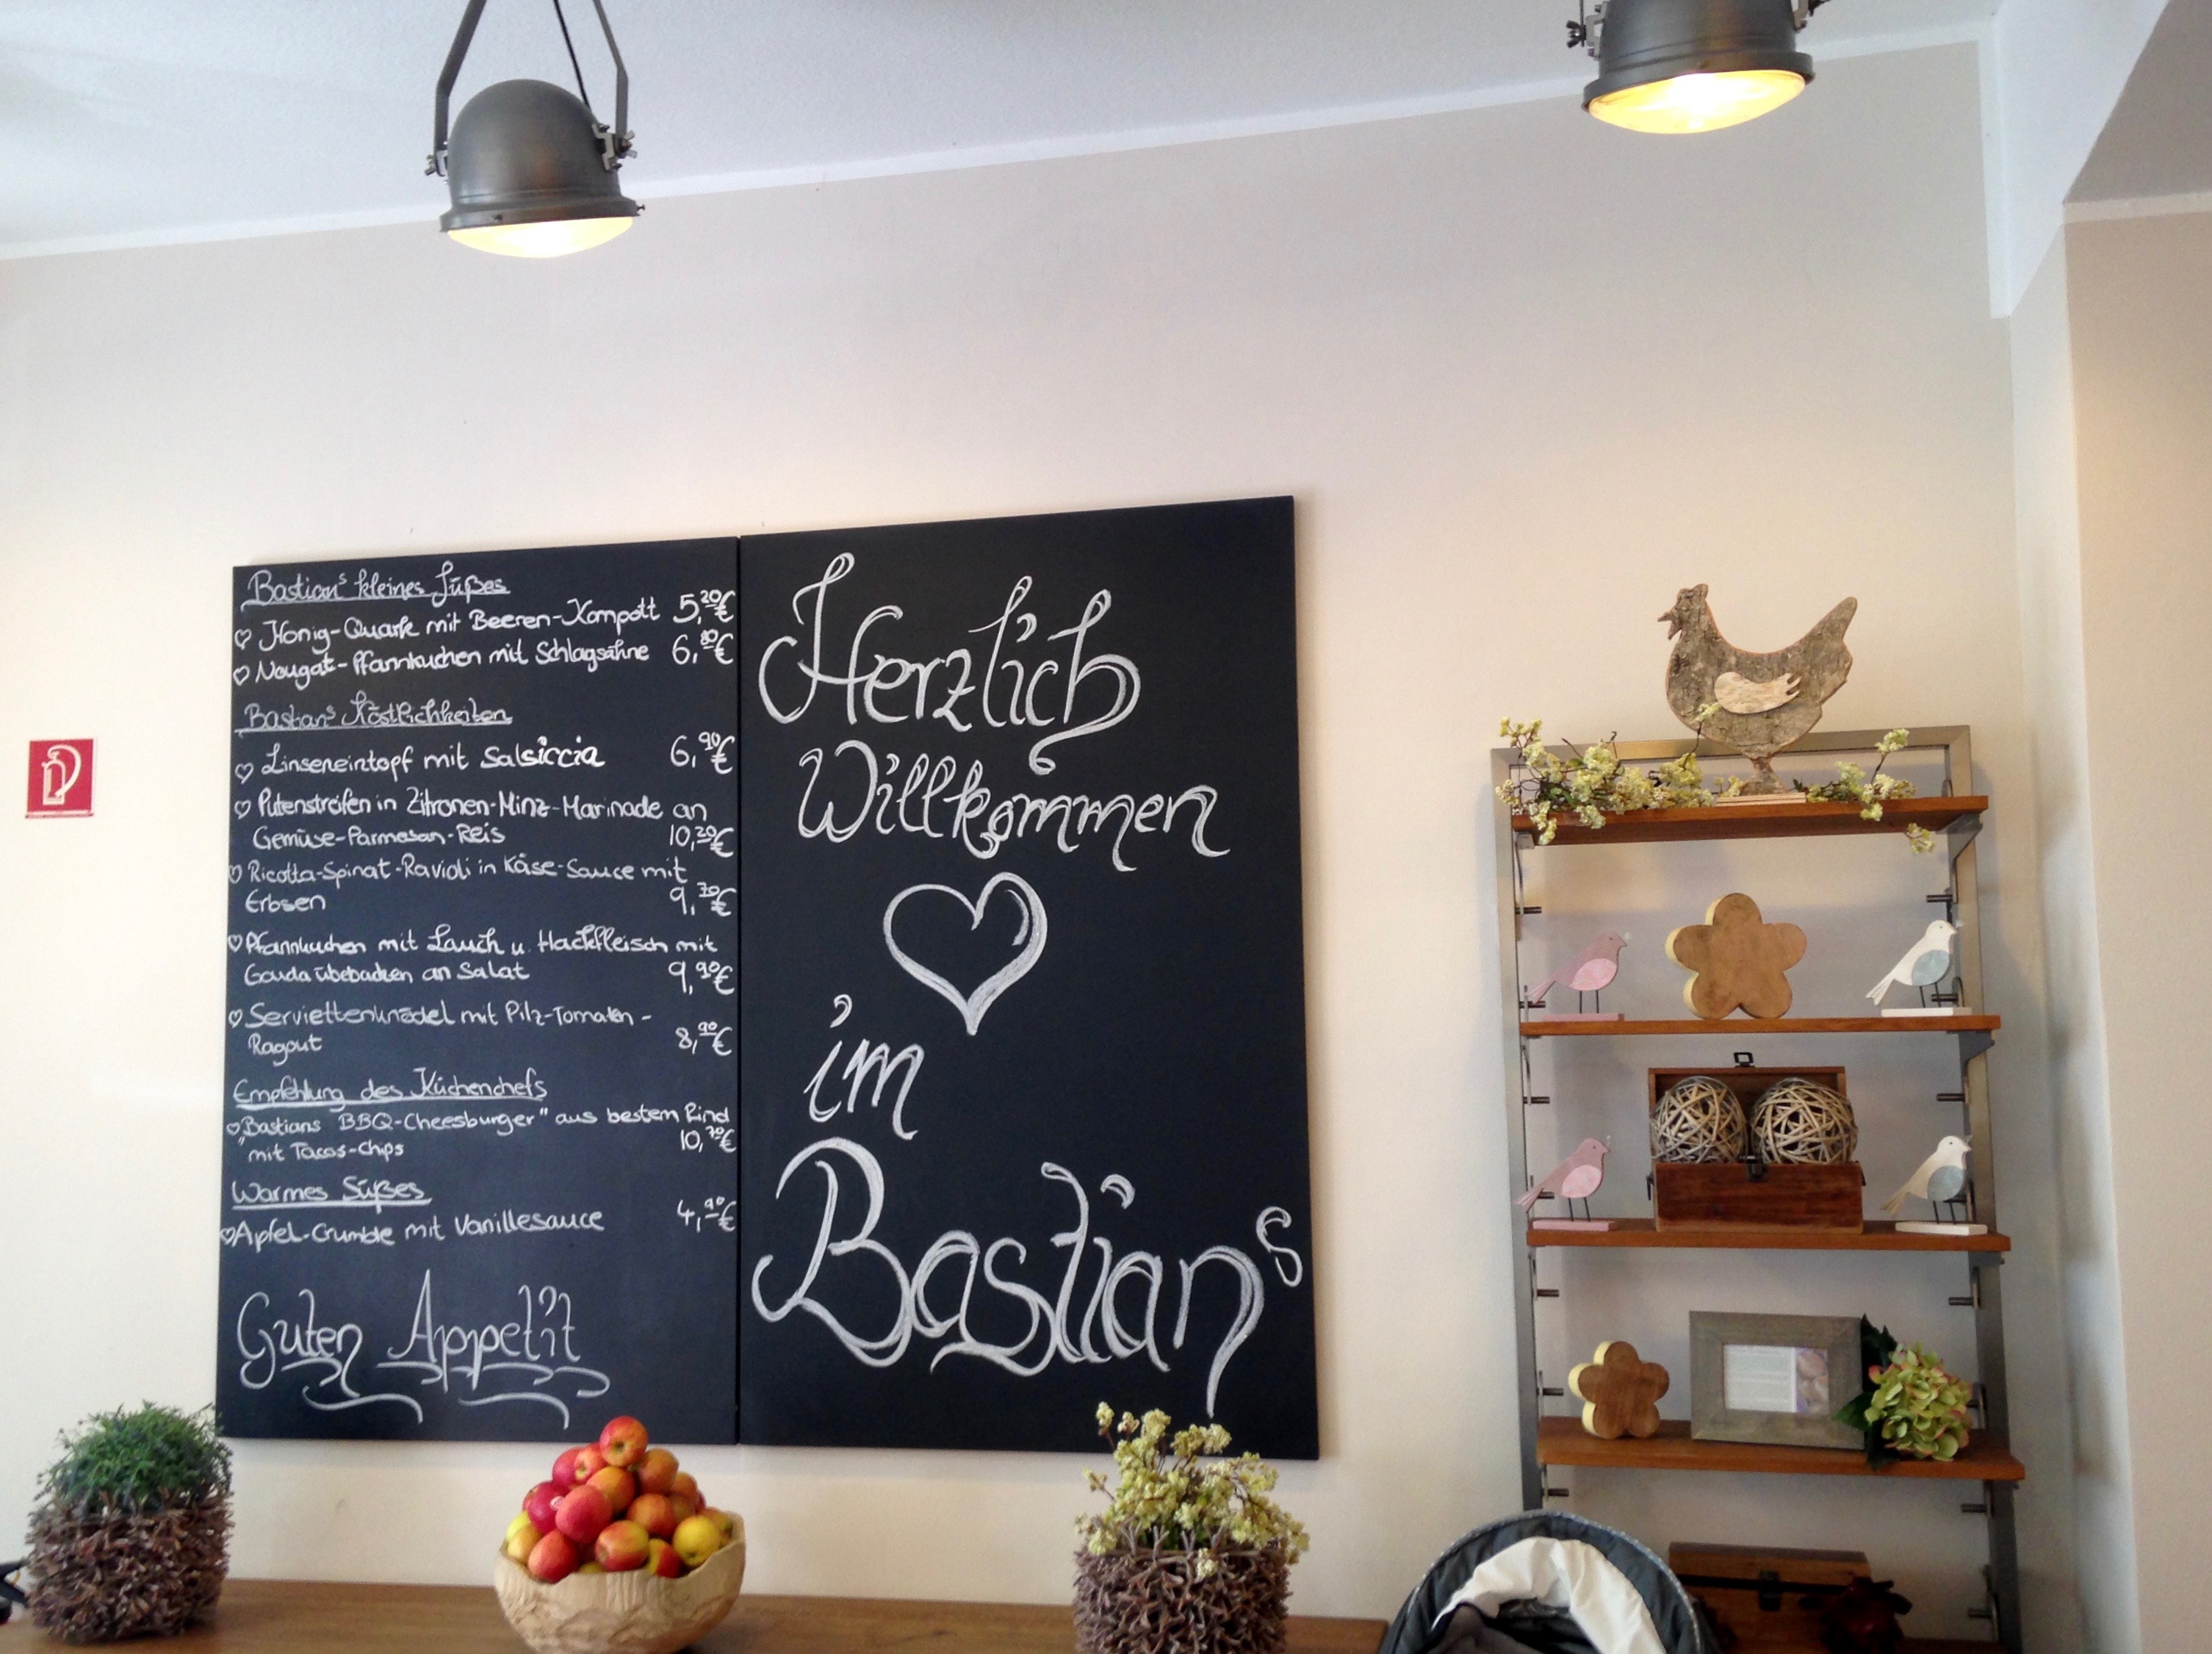 Bastian's kleines Süßes
♡ Honig-Quark mit Beeren-Kompott 5,20€
♡ Nougat-Pfannkuchen mit Schlagsahne 6,80€
Bastian's Köstlichkeiten
♡ Linseneintopf mit Salsiccia 6,90€
♡ Putenstreifen in Zitronen-Minz-Marinade an
Gemüse-Parmesan-Reis 10,20€
♡ Ricotta-Spinat-Ravioli in Käse-Sauce mit
Erbsen 9,70€
♡ Pfannkuchen mit Lauch u. Hackfleisch mit
Gouda übebacken an Salat 9,90€
♡ Serviettenknödel mit Pilz-Tomaten-
Ragout 8,90€
Empfehlung des Küchenchefs
♡ "Bastians BBQ-Cheesburger" aus bestem Rind
mit Tacos-Chips 10,70€
Warmes Süßes
♡ Apfel-Crumble mit Vanillesauce 4,90€
Guten Appetit
Herzlich
Willkommen
im
Bastian's